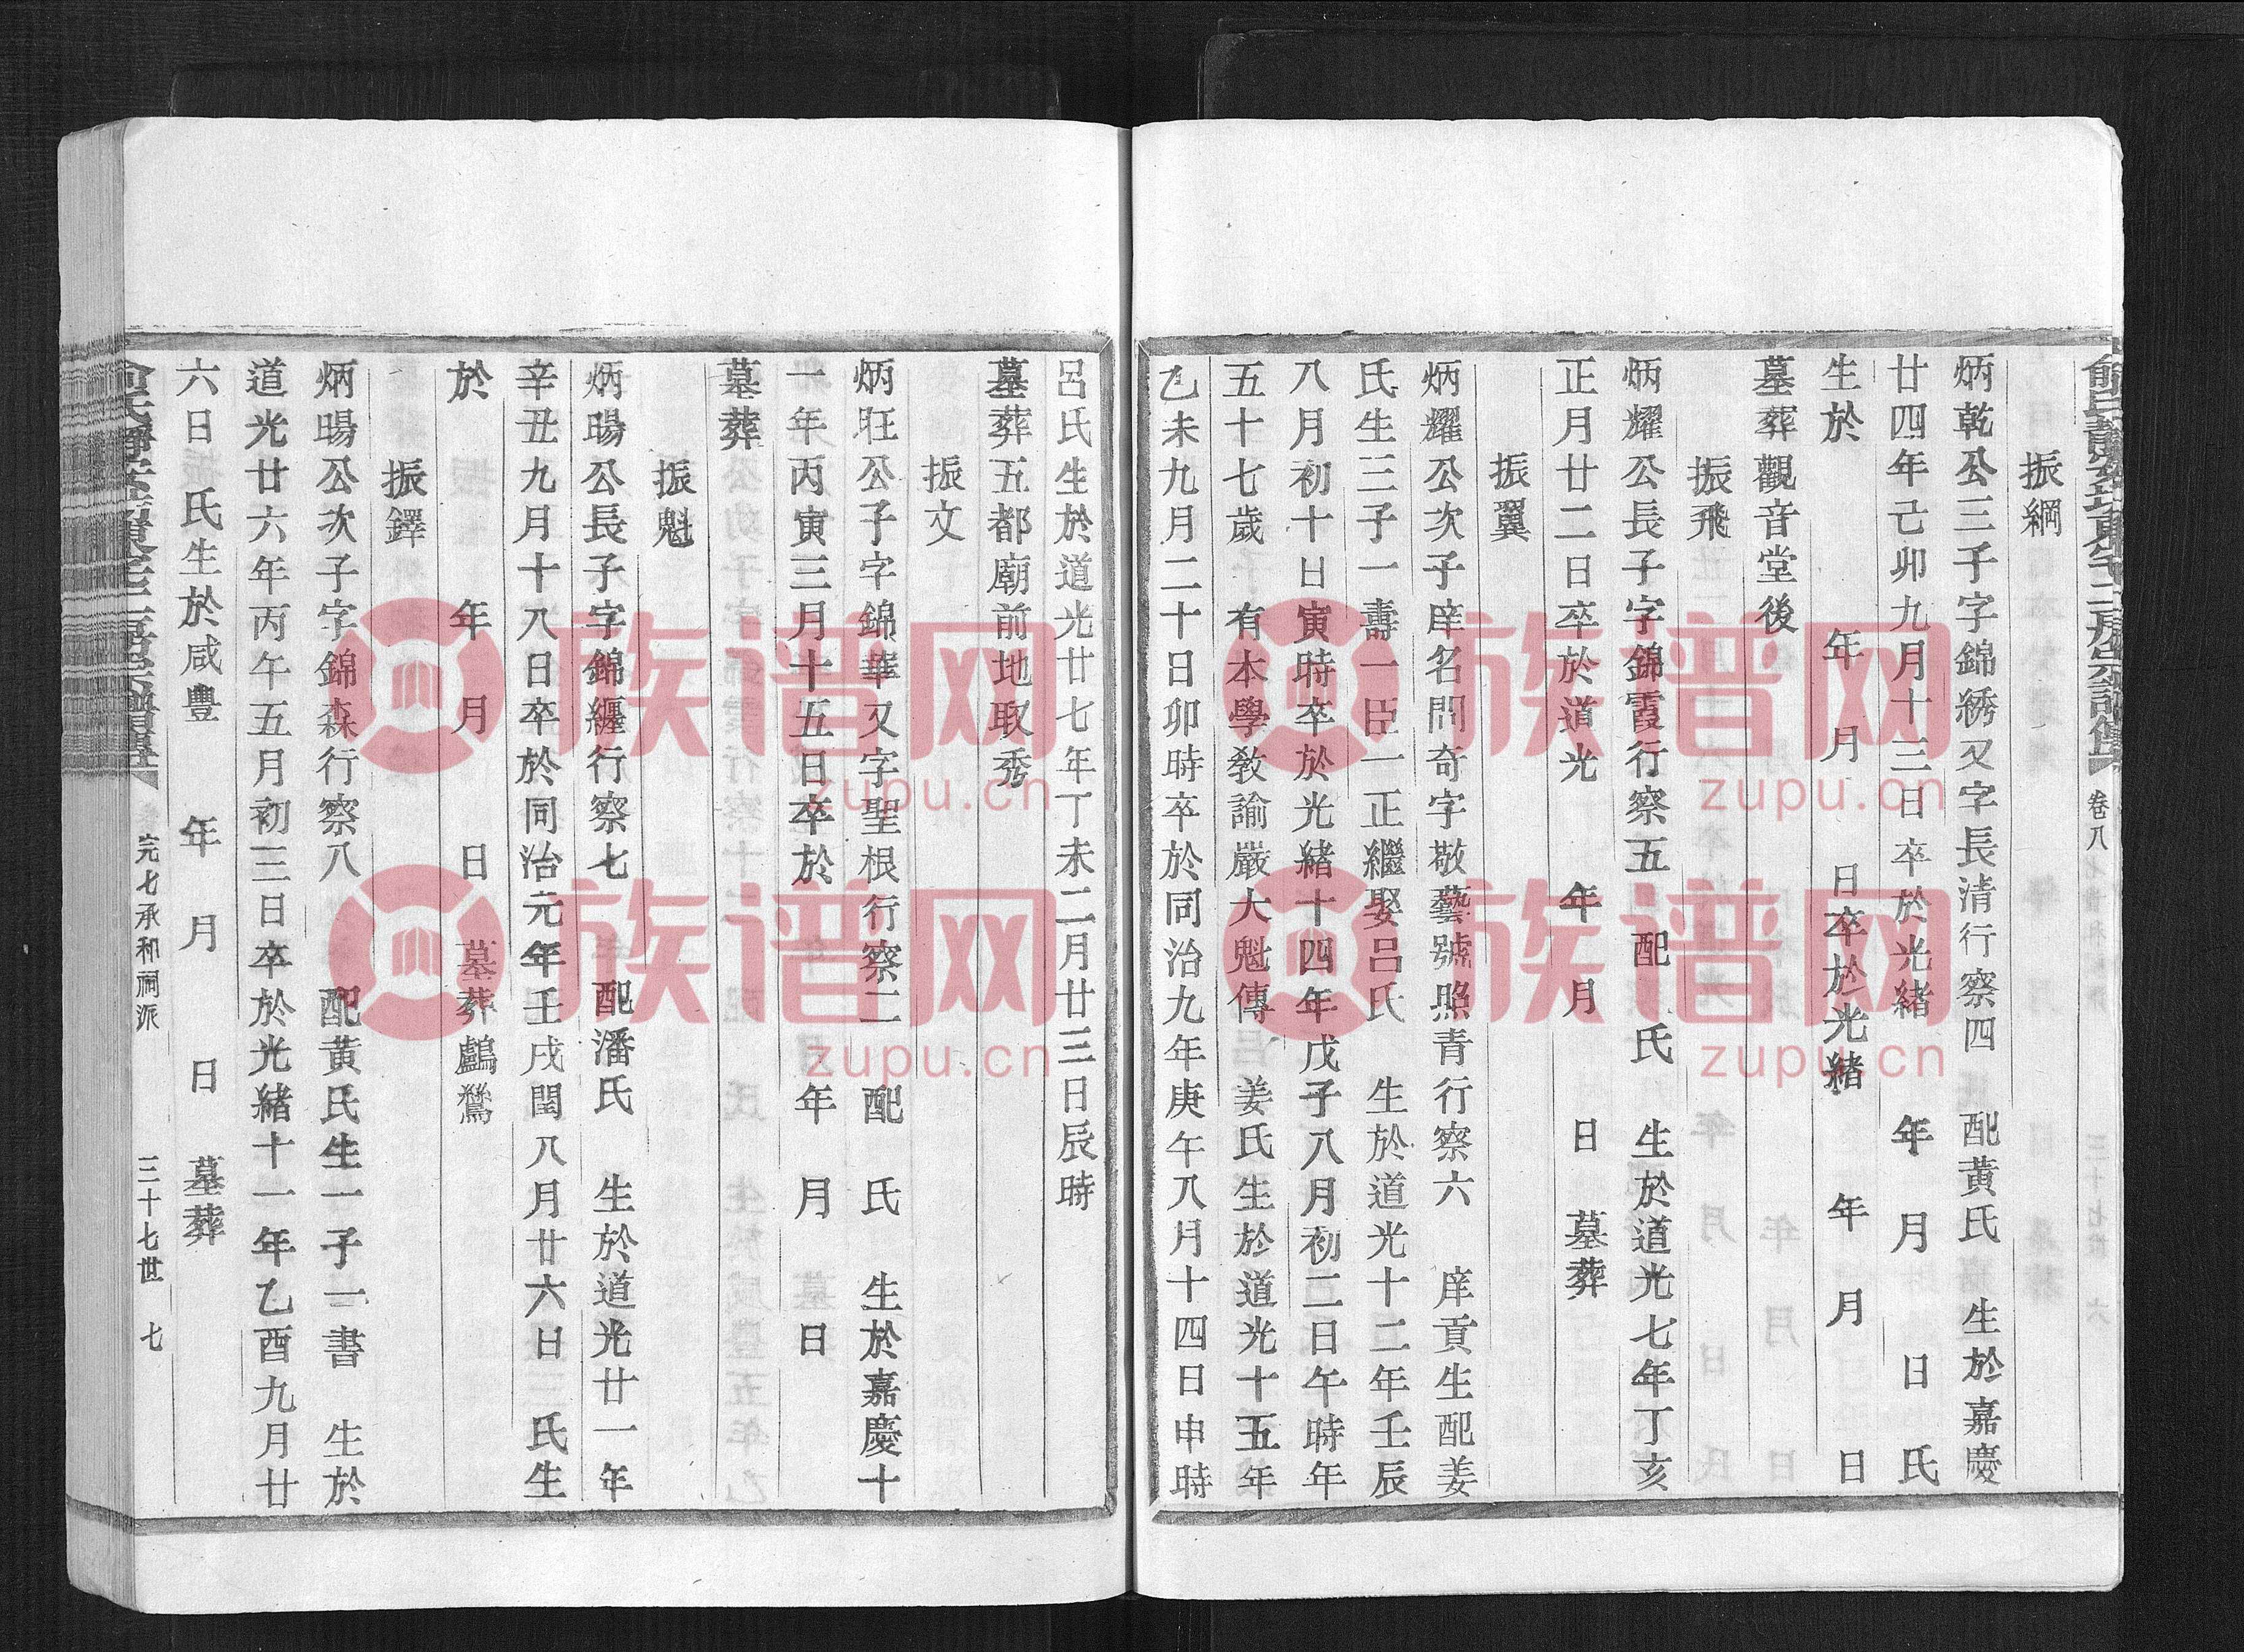 卷八
振綱
炳乾公三子字錦綉又字長清行察四 配黃氏 生於嘉慶
廿四年己卯九月十三日卒於光緒 年 月 日 氏
生於 年 月 日卒於光緒 年 月 日
墓葬觀音堂後
振飛
炳耀公長子字錦霞行察五 配 氏 生於道光七年丁亥
正月廿二日卒於道光 年 月 日 墓葬
振翼
炳耀公次子庠名問奇字敬藝號照青行察六 庠貢生配姜
氏生三子一壽一臣一正繼娶呂氏 生於道光十二年壬辰
八月初十日寅時卒於光緒十四年戊子八月初二日午時年
五十七歲 有本學教諭嚴大魁傳 姜氏生於道光十五年
乙未九月二十日卯時卒於同治九年庚午八月十四日申時
呂氏生於道光廿七年丁未二月廿三日辰時
墓葬五都廟前地取秀
振文
炳旺公子字錦華又字聖根行察二 配 氏 生於嘉慶十
一年丙寅三月十五日卒於 年 月 日
墓葬
振魁
炳暘公長子字錦纏行察七 配潘氏 生於道光廿一年
辛丑九月十八日卒於同治元年壬戌閏八月廿六日 氏生
於 年 月 日 墓葬鸕鶿
振鐸
炳暘公次子字錦森行察八 配黃氏生一子一書 生於
道光廿六年丙午五月初三日卒於光緒十一年乙酉九月廿
六日 氏生於咸豐 年 月 日 墓葬
完七承和祠派 三十七世 七
族谱网
zupu.cn
族谱网
zupu.cn
族谱网
zupu.cn
族谱网
zupu.cn